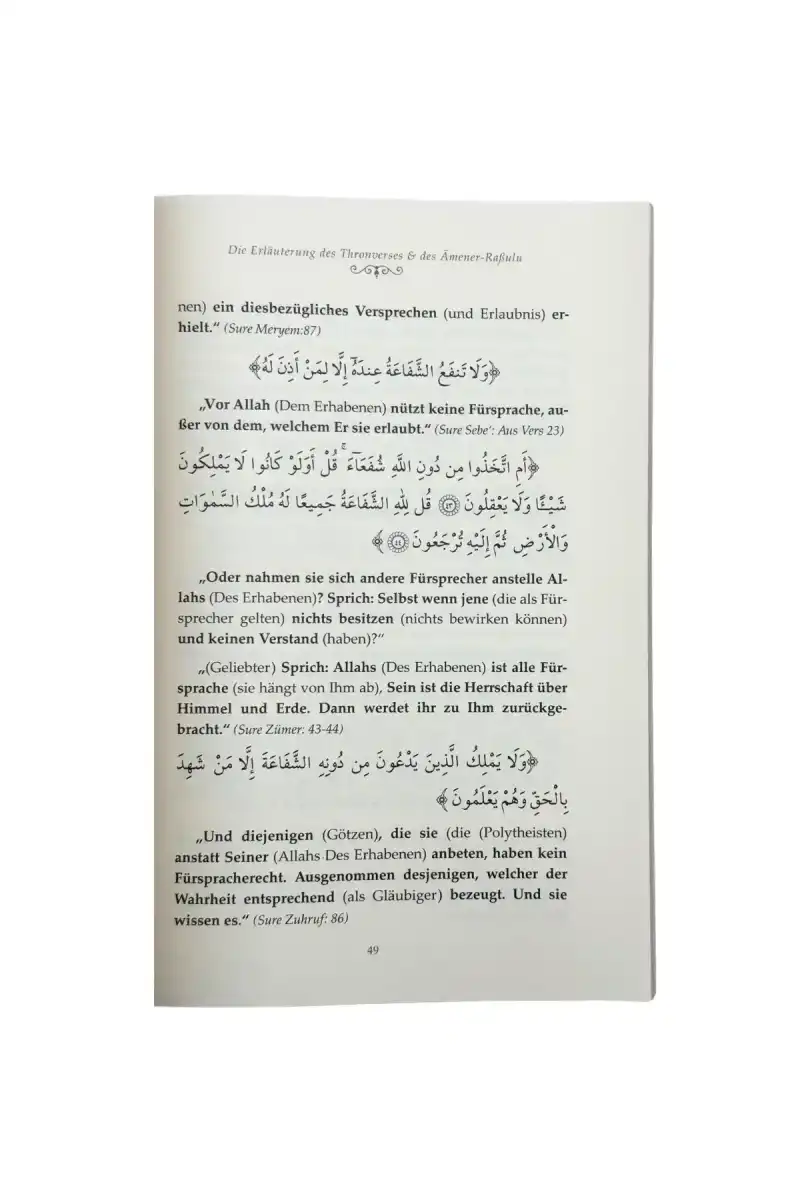 Die Erläuterung des Thronverses & des Âmener-Raßulu
nen) ein diesbezügliches Versprechen (und Erlaubnis) er-
hielt.“ (Sure Meryem:87)
﴿وَلَا تَنفَعُ الشَّفَاعَةُ عِندَهُٓ إِلَّا لِمَنْ أَذِنَ لَهُ﴾
„Vor Allah (Dem Erhabenen) nützt keine Fürsprache, au-
ßer von dem, welchem Er sie erlaubt.“ (Sure Sebe’: Aus Vers 23)
﴿أَمِ اتَّخَذُوا مِن دُونِ اللَّهِ شُفَعَآءَ ۚ قُلْ أَوَلَوْ كَانُوا لَا يَمْلِكُونَ
شَيْئًا وَلَا يَعْقِلُونَ ﴿٤٣﴾ قُل لِلَّهِ الشَّفَاعَةُ جَمِيعًا لَهُ مُلْكُ السَّمٰوَاتِ
وَالْأَرْضِ ثُمَّ إِلَيْهِ تُرْجَعُونَ ﴿٤٤﴾ ﴾
„Oder nahmen sie sich andere Fürsprecher anstelle Al-
lahs (Des Erhabenen)? Sprich: Selbst wenn jene (die als Für-
sprecher gelten) nichts besitzen (nichts bewirken können)
und keinen Verstand (haben)?“
„(Geliebter) Sprich: Allahs (Des Erhabenen) ist alle Für-
sprache (sie hängt von Ihm ab), Sein ist die Herrschaft über
Himmel und Erde. Dann werdet ihr zu Ihm zurückge-
bracht.“ (Sure Zümer: 43-44)
﴿وَلَا يَمْلِكُ الَّذِينَ يَدْعُونَ مِن دُونِهِ الشَّفَاعَةَ إِلَّا مَنْ شَهِدَ
بِالْحَقِّ وَهُمْ يَعْلَمُونَ﴾
„Und diejenigen (Götzen), die sie (die (Polytheisten)
anstatt Seiner (Allahs Des Erhabenen) anbeten, haben kein
Fürspracherecht. Ausgenommen desjenigen, welcher der
Wahrheit entsprechend (als Gläubiger) bezeugt. Und sie
wissen es.“ (Sure Zuhruf: 86)
49